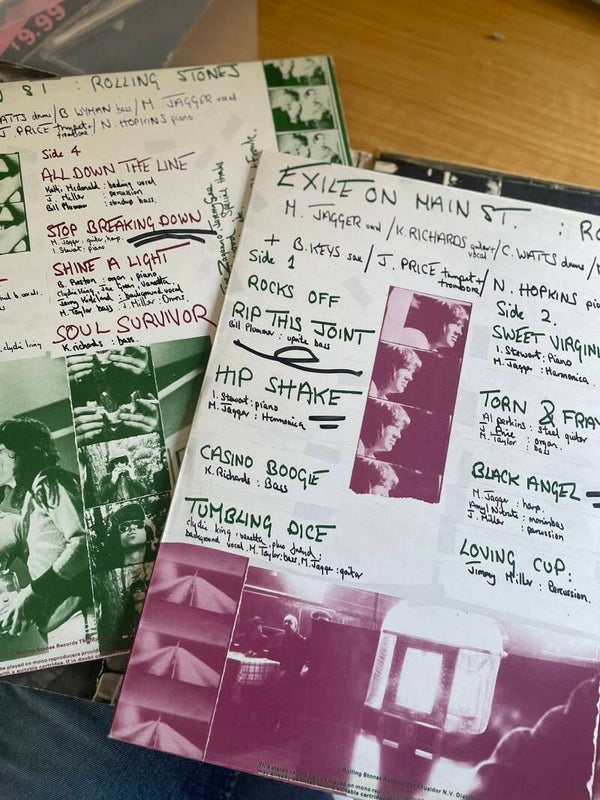 9.99
: ROLLING STONES
WATTS drums / B. WYMAN bass / M. JAGGER vocal
J. PRICE trumpet + trombone / N. HOPKINS piano
Side 4
ALL DOWN THE LINE
Kathi McDonald : backing vocal
J. Miller : percussion
Bill Plummer : standup bass
STOP BREAKING DOWN
M. Jagger : guitar, harp.
I. Stewart : piano
SHINE A LIGHT
B. Preston : organ + piano
M. Taylor bass J. Miller : Drums.
SOUL SURVIVOR
K. richards : bass.
clydie king
Rolling Stones Records
be played on mono reproducers provided
with a suitable cartridge. If in doubt
EXILE ON MAIN ST. : RO
M. JAGGER vocal / K. RICHARDS guitar + vocal / C. WATTS drums /
+ B. KEYS sax / J. PRICE trumpet + trombone / N. HOPKINS piano
Side 1
ROCKS OFF
RIP THIS JOINT
Bill Plummer : uprite bass
HIP SHAKE
I. Stewart : piano
M. Jagger : Harmonica
CASINO BOOGIE
K. Richards : Bass
TUMBLING DICE
clydie king, vanetta, plus friend,
background vocal. M. Taylor: bass, M. Jagger : guitar
Side 2.
SWEET VIRGINI
I. Stewart : Piano
M. Jagger : Harmonica.
TORN & FRAY
Al perkins : steel guitar
J. Price : organ.
M. Taylor : bass
BLACK ANGEL
M. Jagger : harp.
Amyl Nitrate : marimbas
J. Miller : percussion
LOVING CUP :
Jimmy Miller : Percussion.
This stereo
Rolling Stones Records TM Musidor N.V.